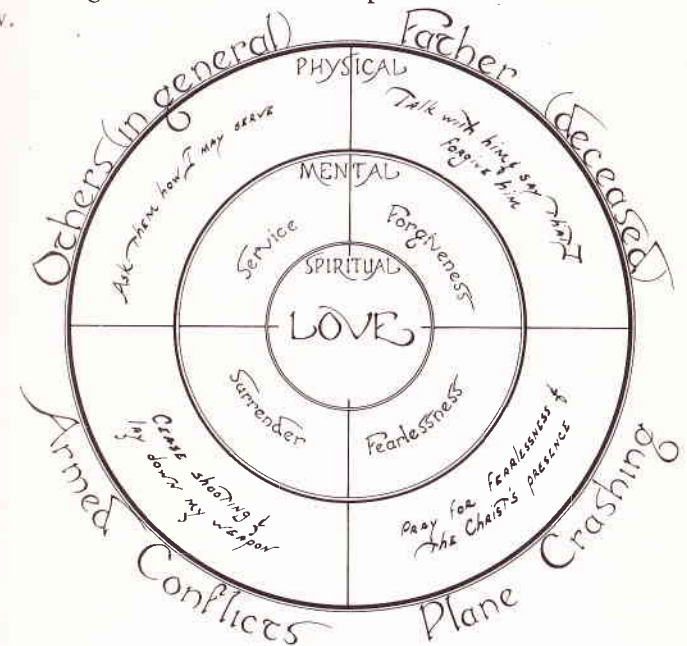 Others (in general)
Father (deceased)
PHYSICAL
Ask them how I may serve
Talk with him & say that I
forgive him
MENTAL
Service
Forgiveness
SPIRITUAL
LOVE
Surrender
Fearlessness
Cease shooting &
lay down my weapon
Pray for fearlessness &
the Christ's presence
Armed Conflicts
Plane Crashing